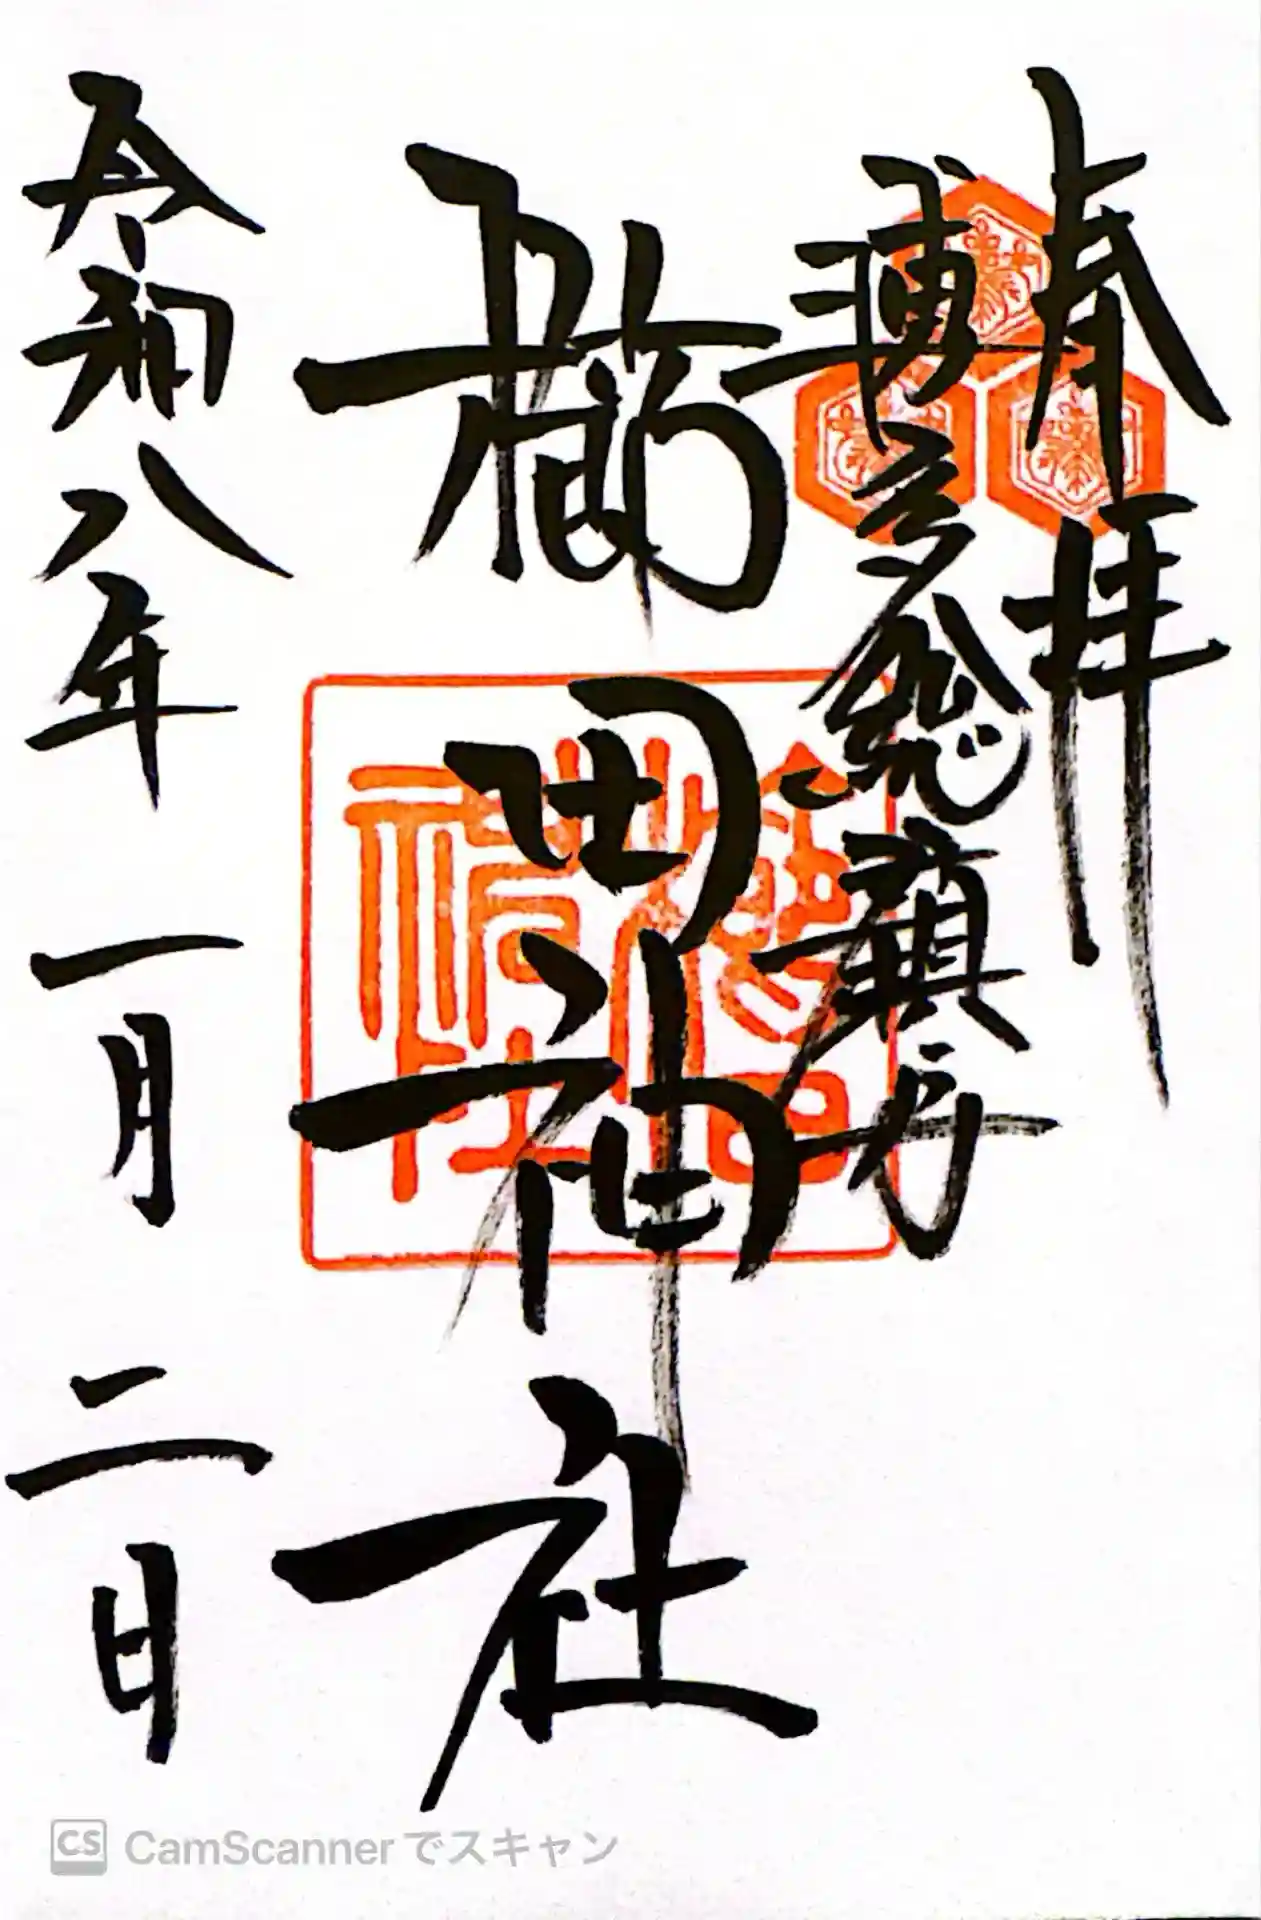 奉拝
博多総鎮守
櫛田神社
櫛田神社
令和八年一月二日
CS CamScannerでスキャン